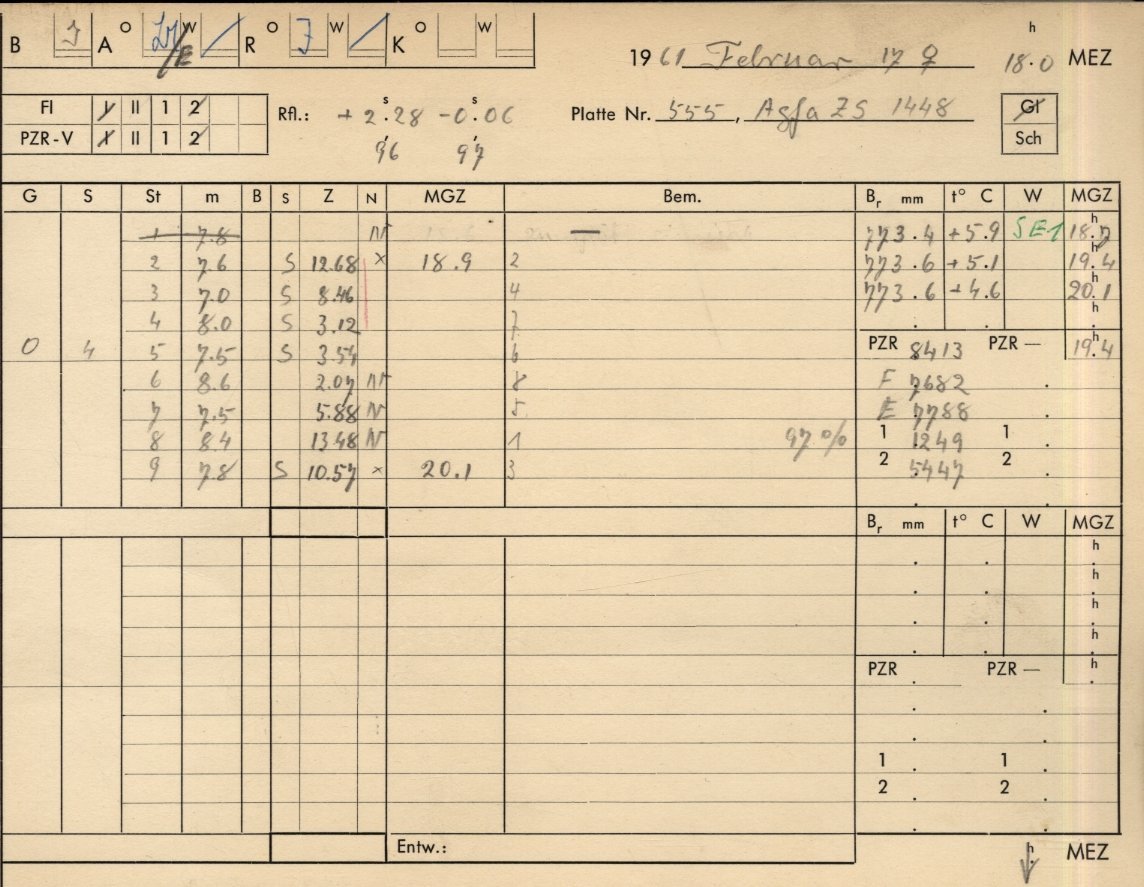 B J A O W / E R O J W K O W
h
19 61 Februar 17 ♀ 18.0 MEZ
Fl I II 1 2 Rfl.: + 2.ˢ28 - 0.ˢ06 Platte Nr. 555, Agfa ZS 1448 Gl
PZR-V I II 1 2 96 97 Sch
G S St m B S Z N MGZ Bem. Bᵣ mm t° C W MGZ
1 7.8 N — 773.4 +5.9 SE1 18.ʰ7
2 7.6 S 12.68 × 18.9 2 773.6 +5.1 19.ʰ4
3 7.0 S 8.46 4 773.6 +4.6 20.ʰ1
4 8.0 S 3.12 7 h
0 4 5 7.5 S 3.54 6 PZR 8413 PZR — 19.ʰ4
6 8.6 2.07 N 8 F 7682
7 7.5 5.88 N 5 E 7788
8 8.4 13.48 N 1 97 % 1 1249 1
9 7.8 S 10.57 × 20.1 3 2 5447 2
Bᵣ mm t° C W MGZ
h
h
h
h
PZR PZR — h
1 1
2 2
Entw.: h MEZ